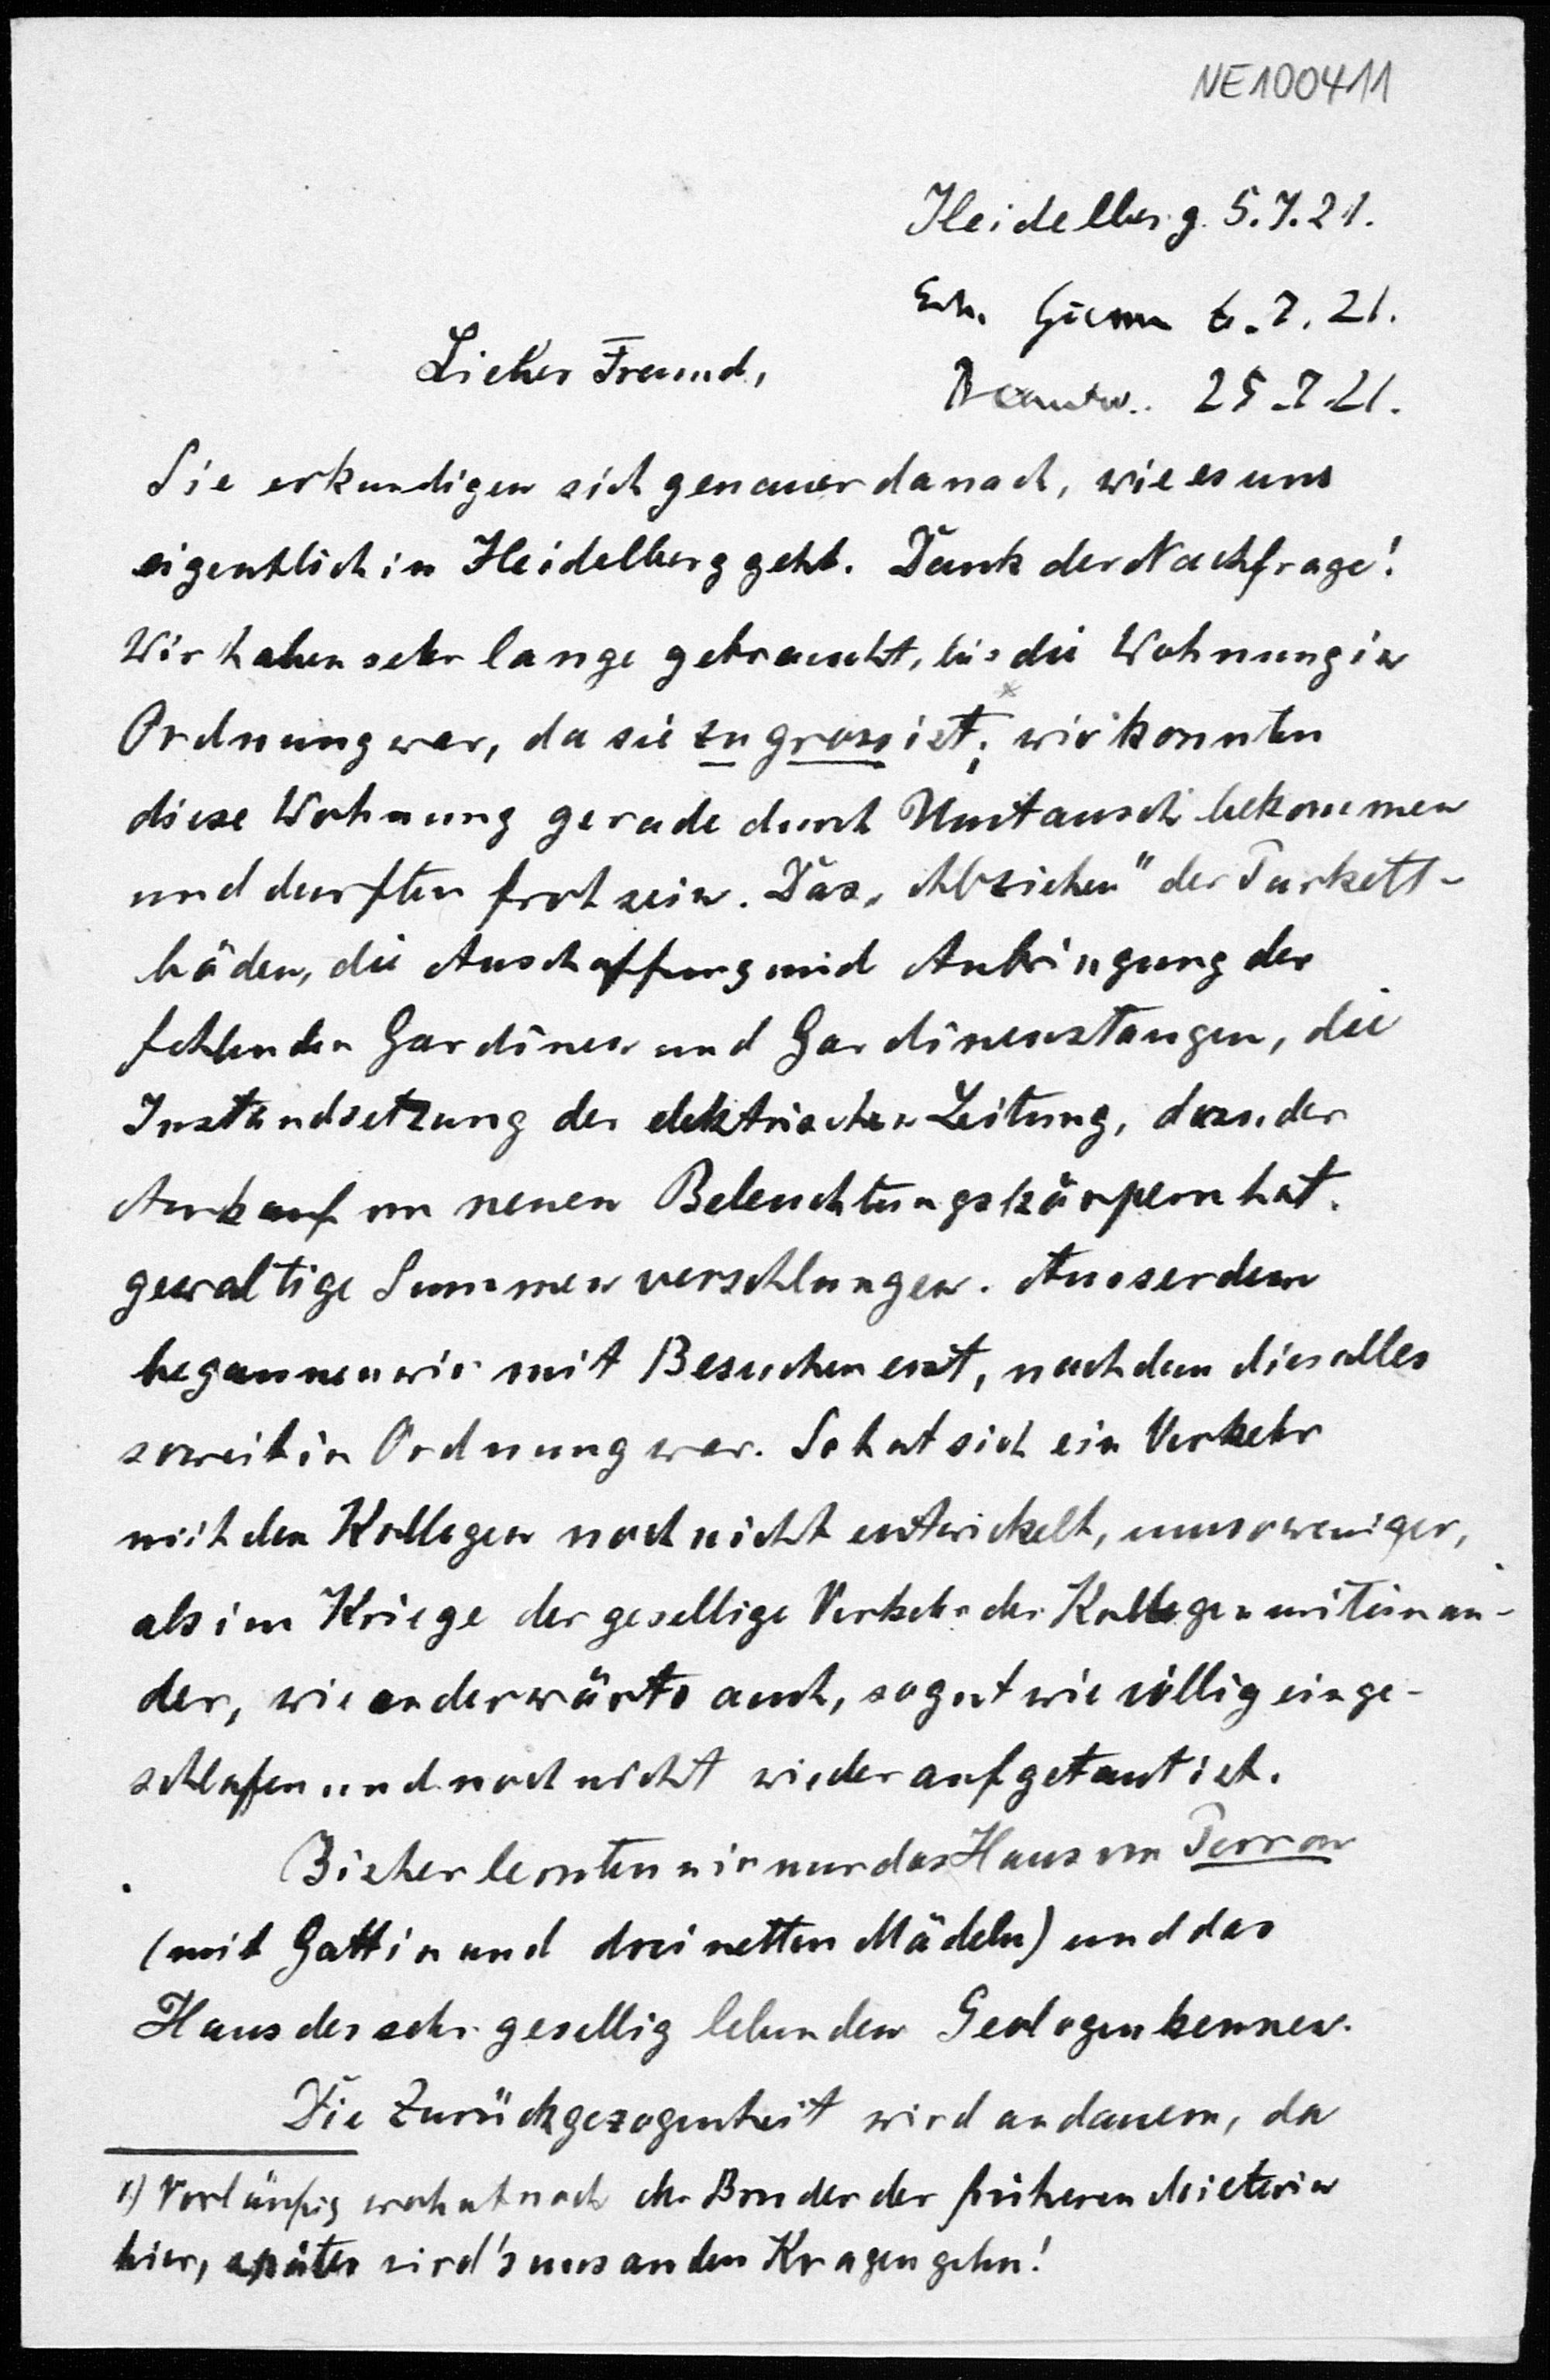 NE100411
Heidelberg 5.7.21.
Erh. 6.7.21.
Lieber Freund,
Beantw. 25.7.21.
Sie erkundigen sich genauer danach, wie es uns
eigentlich in Heidelberg geht. Dank der Nachfrage!
Wir haben sehr lange gebraucht, bis die Wohnung in
Ordnung war, da sie zu gross ist; wir konnten
diese Wohnung gerade durch Umtausch bekommen
und durften froh sein. Das „Abziehen" der Parkett-
böden, die Anschaffung und Anbringung der
fehlenden Gardinen und Gardinenstangen, die
Instandsetzung der elektrischen Leitung, dazu der
Ankauf von neuen Beleuchtungskörpern hat
gewaltige Summen verschlungen. Ausserdem
begannen wir mit Besuchen erst, nachdem dies alles
soweit in Ordnung war. So hat sich ein Verkehr
mit den Kollegen noch nicht entwickelt, umsoweniger,
als im Kriege der gesellige Verkehr der Kollegen miteinan-
der, wie anderwärts auch, so gut wie völlig einge-
schlafen und noch nicht wieder aufgetaut ist.
Bisher lernten wir nur das Haus von Perron
(mit Gattin und drei netten Mädeln) und das
Haus des sehr gesellig lebenden Geologen kennen.
Die Zurückgezogenheit wird andauern, da
1.) Vorläufig wohnt noch der Bruder der früheren Mieterin
hier, später wird's uns an den Kragen gehn!